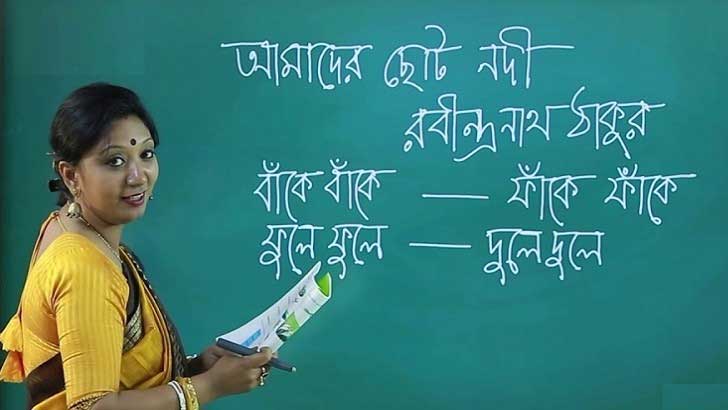 আমাদের ছোট নদী
রবীন্দ্রনাথ ঠাকুর
বাঁকে বাঁকে — ফাঁকে ফাঁকে
ফুলে ফুলে — দুলে দুলে